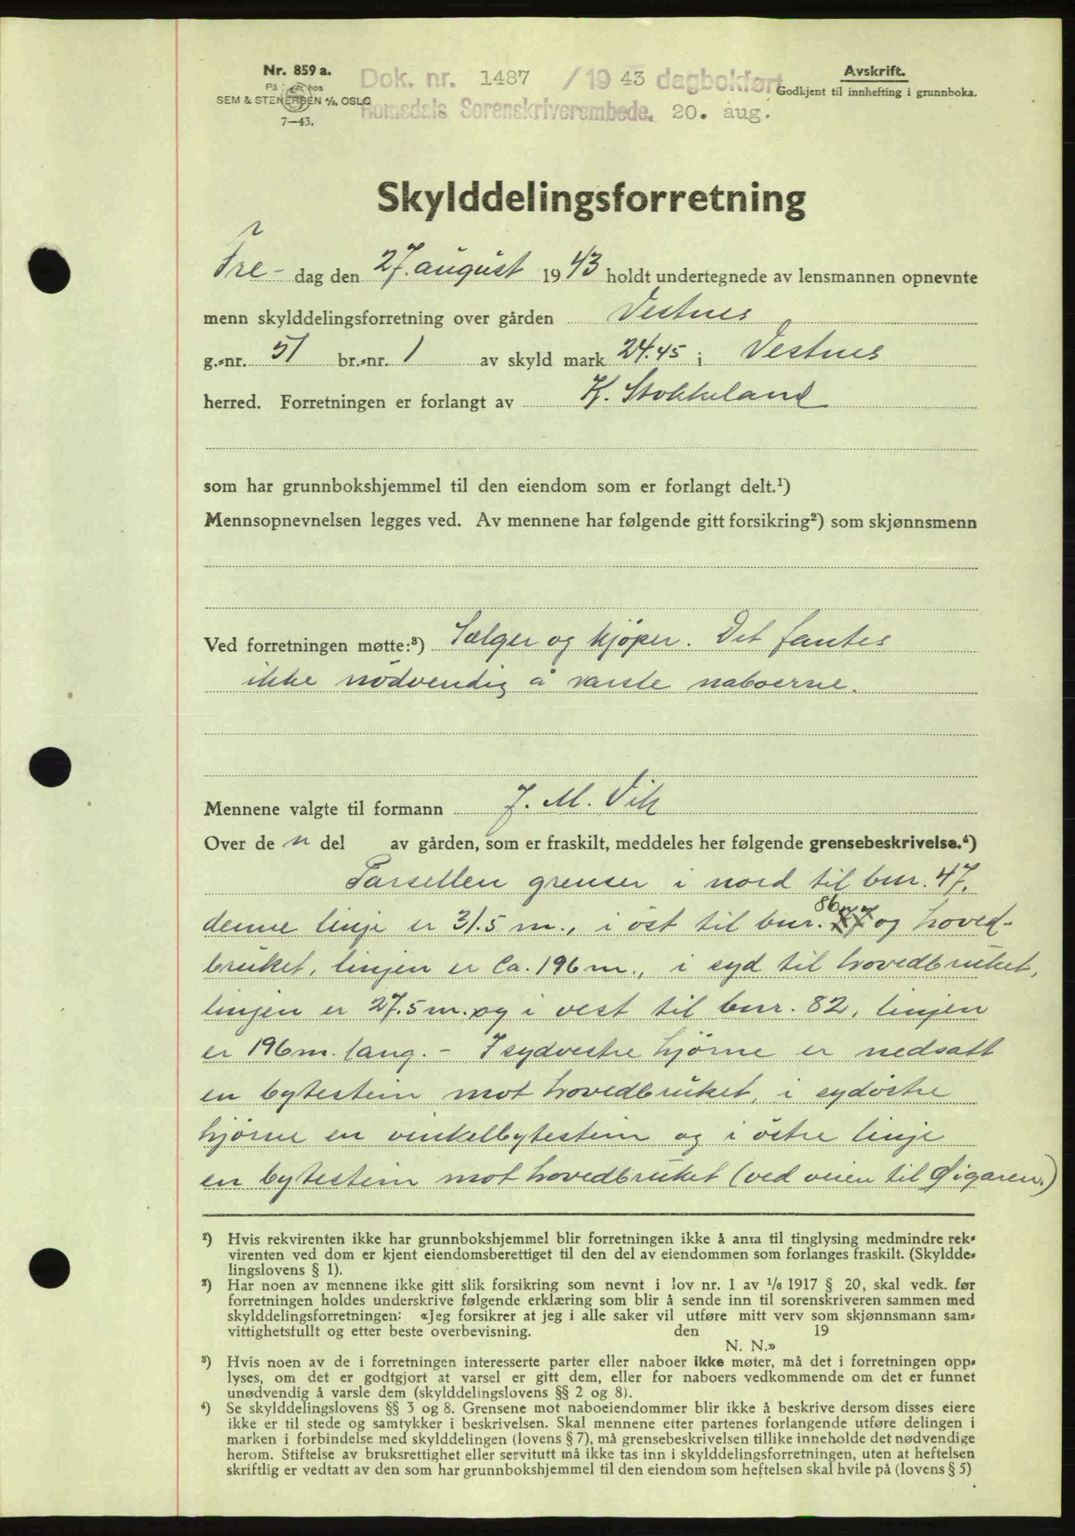 Nr. 859 a.
På hos
SEM & STENERSEN A/S, OSLO
7—43.
Dok. nr. 1487 / 19 43 dagbokført
Romsdals Sorenskriverembede. 20. aug.
Avskrift.
Godkjent til innhefting i grunnboka.
Skylddelingsforretning
Fre- dag den 27. august 19 43 holdt undertegnede av lensmannen opnevnte
menn skylddelingsforretning over gården Vestnes
g.-nr. 51 br.-nr. 1 av skyld mark 24.45 i Vestnes
herred. Forretningen er forlangt av K. Stokkeland
som har grunnbokshjemmel til den eiendom som er forlangt delt.¹)
Mennsopnevnelsen legges ved. Av mennene har følgende gitt forsikring²) som skjønnsmenn
Ved forretningen møtte:³) Sælger og kjöper. Det fantes
ikke nödvendig å varsle naboerne.
Mennene valgte til formann J. M. Vik
Over de n del av gården, som er fraskilt, meddeles her følgende grensebeskrivelse.⁴)
Parsellen grenser i nord til bnr. 47,
denne linje er 31.5 m., i öst til bnr. 86 og hoved-
bruket, linjen er ca. 196 m., i syd til hovedbruket,
linjen er 27.5 m. og i vest til bnr. 82, linjen
er 196 m. lang. - I sydvestre hjörne er nedsatt
en bytestein mot hovedbruket, i sydöstre
hjörne en vinkelbytestein og i östre linje
en bytestein mot hovedbruket (ved veien til
¹) Hvis rekvirenten ikke har grunnbokshjemmel blir forretningen ikke å anta til tinglysing medmindre rek-
virenten ved dom er kjent eiendomsberettiget til den del av eiendommen som forlanges fraskilt. (Skyldde-
lingslovens § 1).
²) Har noen av mennene ikke gitt slik forsikring som nevnt i lov nr. 1 av 1/6 1917 § 20, skal vedk. før
forretningen holdes underskrive følgende erklæring som blir å sende inn til sorenskriveren sammen med
skylddelingsforretningen: «Jeg forsikrer at jeg i alle saker vil utføre mitt verv som skjønnsmann sam-
vittighetsfullt og etter beste overbevisning. den 19
N. N.»
³) Hvis noen av de i forretningen interesserte parter eller naboer ikke møter, må det i forretningen opp-
lyses, om det er godtgjort at varsel er gitt dem, eller for naboers vedkommende om det er funnet
unødvendig å varsle dem (skylddelingslovens §§ 2 og 8).
⁴) Se skylddelingslovens §§ 3 og 8. Grensene mot naboeiendommer blir ikke å beskrive dersom disses eiere
ikke er til stede og samtykker i beskrivelsen. Skal mennene etter partenes forlangende utføre delingen i
marken i forbindelse med skylddelingen (lovens § 7), må grensebeskrivelsen tillike inneholde det nødvendige
herom. Stiftelse av bruksrettighet eller servitutt må ikke tas inn i skylddelingsforretningen, uten at heftelsen
skriftlig er vedtatt av den som har grunnbokshjemmel til den eiendom som heftelsen skal hvile på (lovens § 5)